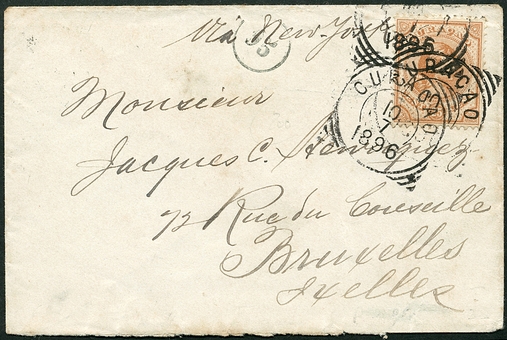 via New-York
15
1896
CURAÇAO
CURAÇAO
10
7
1896
Monsieur
Jacques C. Henriquez
72 Rue du Conseille
Bruxelles
Ixelles